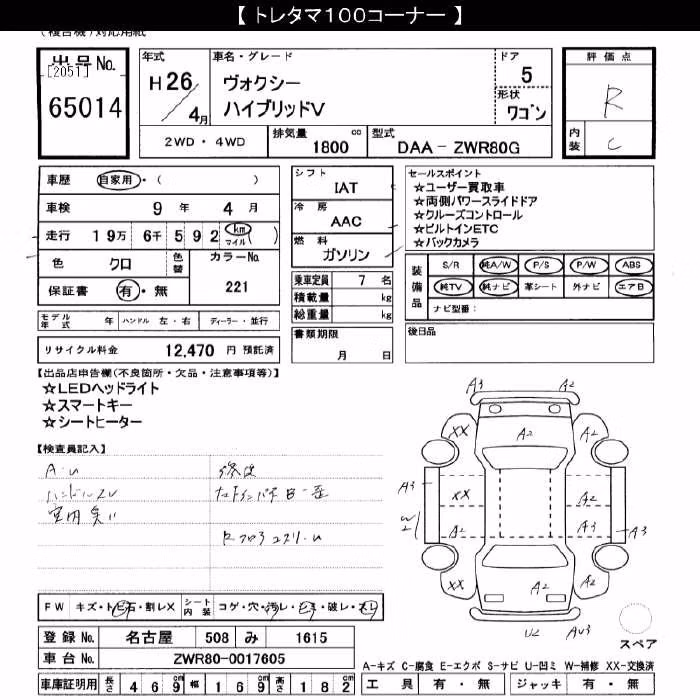 【 トレタマ100コーナー 】
(複合機)対応用紙
出品No.
[2051]
65014
年式
H26/4月
車名・グレード
ヴォクシー
ハイブリッドV
ドア
5
形状
ワゴン
2WD・4WD
排気量 1800 cc
型式 DAA - ZWR80G
評価点
R
内装
C
車歴 自家用・( )
車検 9年 4月
走行 19万 6千 5 9 2 km マイル )
色 クロ 色替 カラーNo.
保証書 有・無 221
シフト
IAT
冷房
AAC
燃料
ガソリン
乗車定員 7 名
積載量 kg
総重量 kg
セールスポイント
☆ユーザー買取車
☆両側パワースライドドア
☆クルーズコントロール
☆ビルトインETC
☆バックカメラ
装備品 S/R 純A/W P/S P/W ABS
純TV 純ナビ 革シート 外ナビ エアB
ナビ型番:
モデル年式 年 ハンドル 左・右 ディーラー・並行
リサイクル料金 12,470 円 預託済
書類期限
月 日
後日品
【出品店申告欄(不良箇所・欠品・注意事項等)】
☆LEDヘッドライト
☆スマートキー
☆シートヒーター
【検査員記入】
A・U
ハンドルスレ
A3 A2
XX A2 A2
A3 XX A2
W2 A2 A3 A3
XX A2 A2
U2 AU3
スペア
FW キズ・トビ石・割レX シート内装 コゲ・穴・汚レ・キズ・破レ・スレ
登録No. 名古屋 508 み 1615
車台No. ZWR80-0017605
車庫証明用 長さ 469cm 幅 169cm 高さ 182cm
A-キズ C-腐食 E-エクボ S-サビ U-凹ミ W-補修 XX-交換済
工具 有・無 ジャッキ 有・無